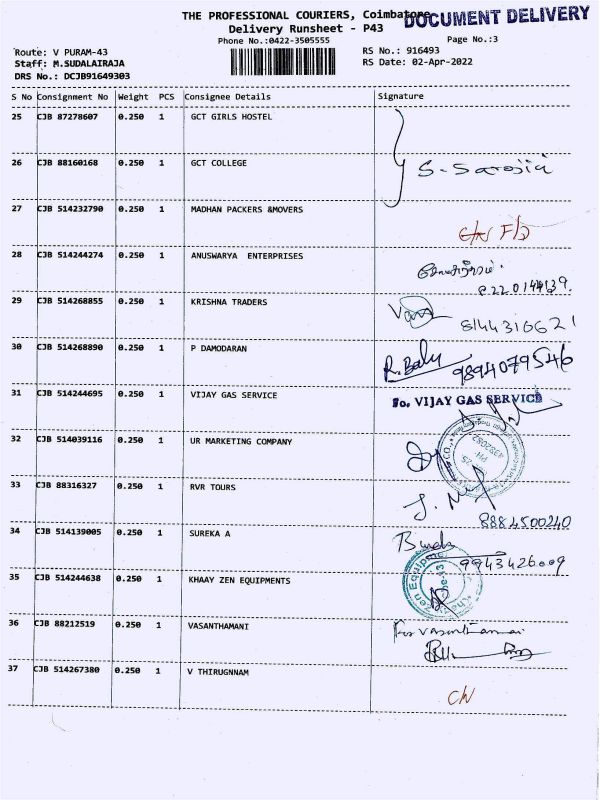 THE PROFESSIONAL COURIERS, Coimbatore
DOCUMENT DELIVERY
Delivery Runsheet - P43
Phone No.:0422-3505555
Page No.:3
Route: V PURAM-43
RS No.: 916493
Staff: M.SUDALAIRAJA
RS Date: 02-Apr-2022
DRS No.: DCJB91649303
S No Consignment No Weight PCS Consignee Details Signature
25 CJB 87278607 0.250 1 GCT GIRLS HOSTEL
26 CJB 88160168 0.250 1 GCT COLLEGE S. Sarojini
27 CJB 514232790 0.250 1 MADHAN PACKERS &MOVERS
28 CJB 514244274 0.250 1 ANUSWARYA ENTERPRISES
8220144139.
29 CJB 514268855 0.250 1 KRISHNA TRADERS
8144316621
30 CJB 514268890 0.250 1 P DAMODARAN R. Balu 9894079546
31 CJB 514244695 0.250 1 VIJAY GAS SERVICE For VIJAY GAS SERVICE
32 CJB 514039116 0.250 1 UR MARKETING COMPANY
33 CJB 88316327 0.250 1 RVR TOURS
8884500240
34 CJB 514139005 0.250 1 SUREKA A
9943426009
35 CJB 514244638 0.250 1 KHAAY ZEN EQUIPMENTS
36 CJB 88212519 0.250 1 VASANTHAMANI For Vasanthamani
37 CJB 514267380 0.250 1 V THIRUGNNAM